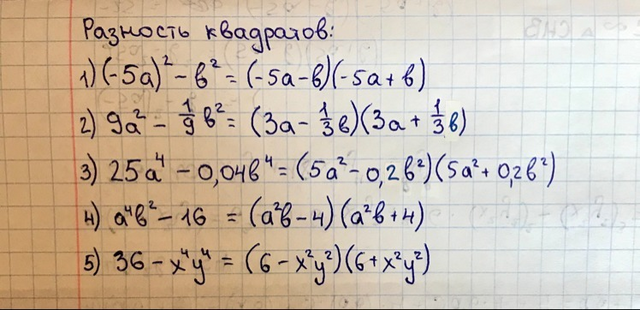 Разность квадратов:
1) (-5a)² - b² = (-5a-b)(-5a+b)
2) 9a² - 1/9 b² = (3a - 1/3 b)(3a + 1/3 b)
3) 25a⁴ - 0,04b⁴ = (5a² - 0,2b²)(5a² + 0,2b²)
4) a⁴b² - 16 = (a²b - 4)(a²b + 4)
5) 36 - x⁴y⁴ = (6 - x²y²)(6 + x²y²)